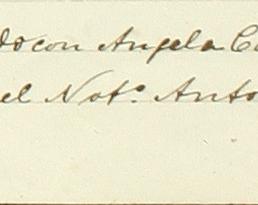 do con Angela Ca
el Not.º Anto